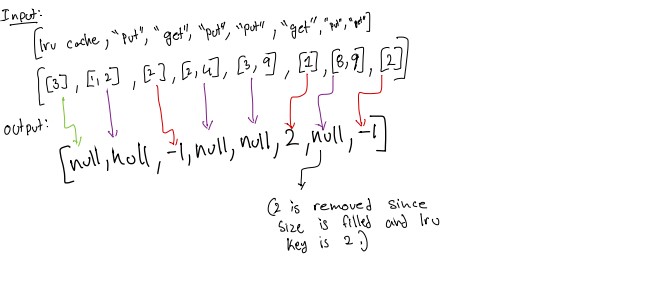 Input:
[lru cache, "put", "get", "put", "put", "get", "put", "get"]
[[3], [1,2], [2], [2,4], [3,9], [1], [8,9], [2]]
output:
[null, null, -1, null, null, 2, null, -1]
(2 is removed since
size is filled and lru
key is 2.)